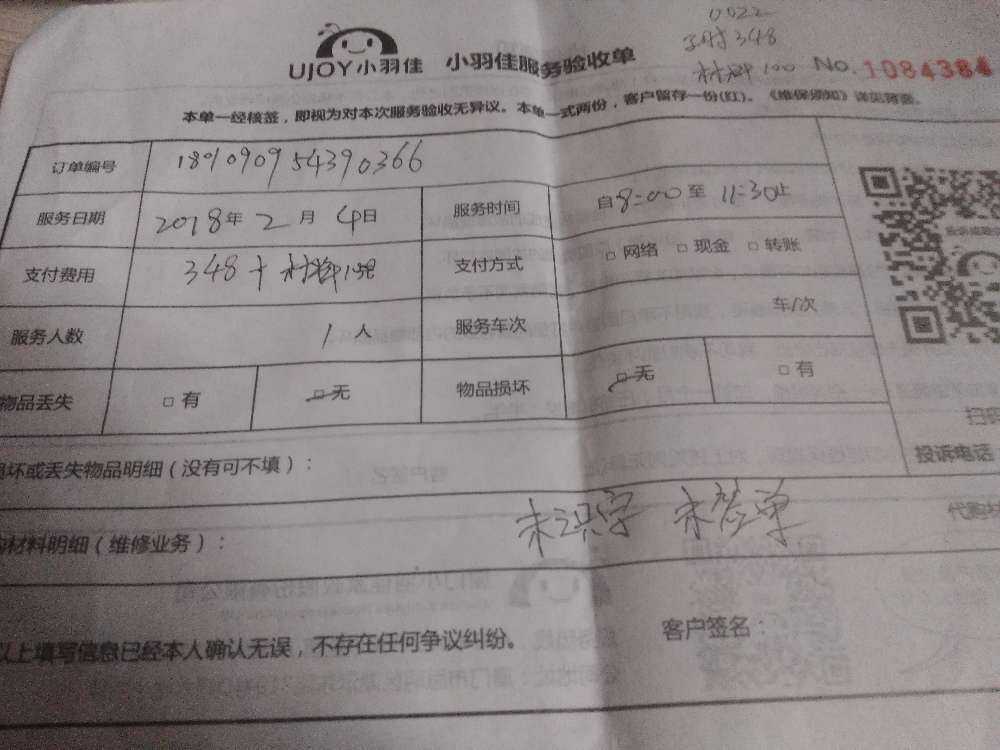 0522
348
材料100
UJOY小羽佳 小羽佳服务验收单 No. 1084384
本单一经核签，即视为对本次服务验收无异议。本单一式两份，客户留存一份(红)。《维保须知》详见背面。
订单编号 18909095439036​6
服务日期 2018年2月4日 服务时间 自8:00至11:30止
支付费用 348+材料 支付方式 □网络 □现金 □转账
服务人数 1人 服务车次 车/次
物品丢失 □有 □无 物品损坏 □无 □有
损坏或丢失物品明细（没有可不填）：
投诉电话
材料明细（维修业务）：
未签单
以上填写信息已经本人确认无误，不存在任何争议纠纷。 客户签名：